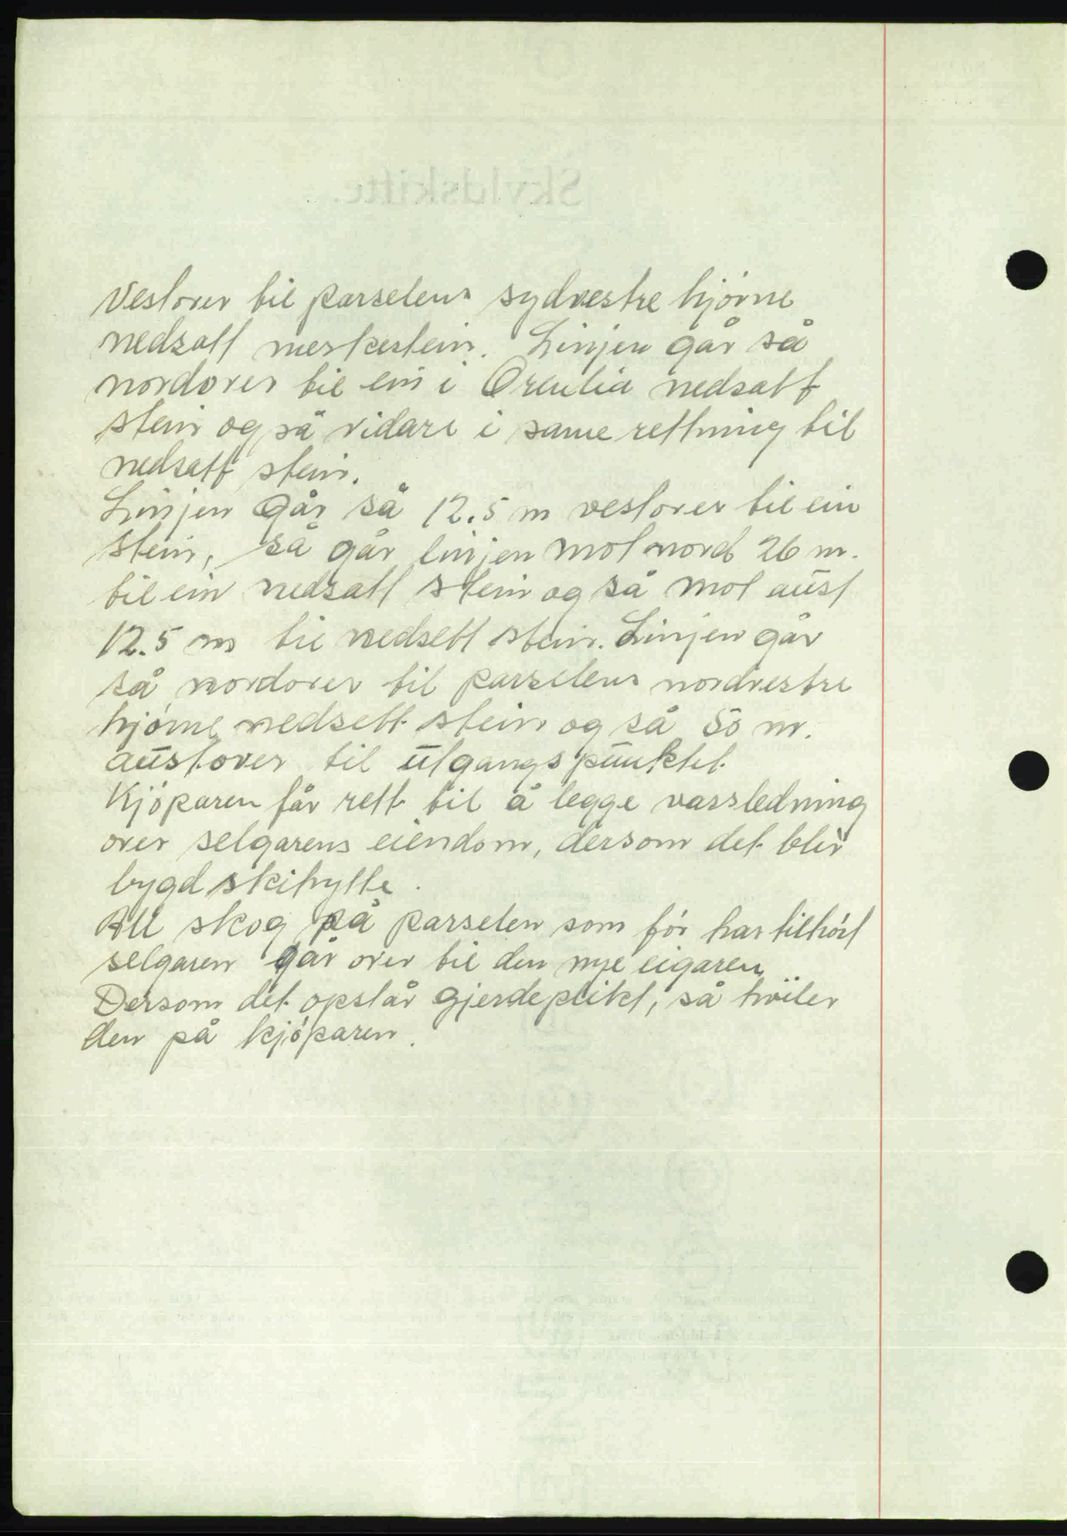 vestover til parselens sydvestre hjörne
nedsatt merkestein. Linjen går så
nordover til ein i Orrelia nedsatt
stein og så vidare i same rettning til
nedsatt stein.
Linjen går så 12.5 m vestover til ein
stein, så går linjen mot nord 26 m.
til ein nedsatt stein og så mot aust
12.5 m til nedsett stein. Linjen går
så nordover til parselens nordvestre
hjörne nedsett stein og så 50 m.
austover til utgangspunktet.
Kjöparen får rett til å legge vassledning
over selgarens eiendom, dersom det blir
bygd skihytte.
All skog på parselen som för har tilhört
selgaren går over til den nye eigaren.
Dersom det opstår gjerdeplikt, så hviler
den på kjöparen.